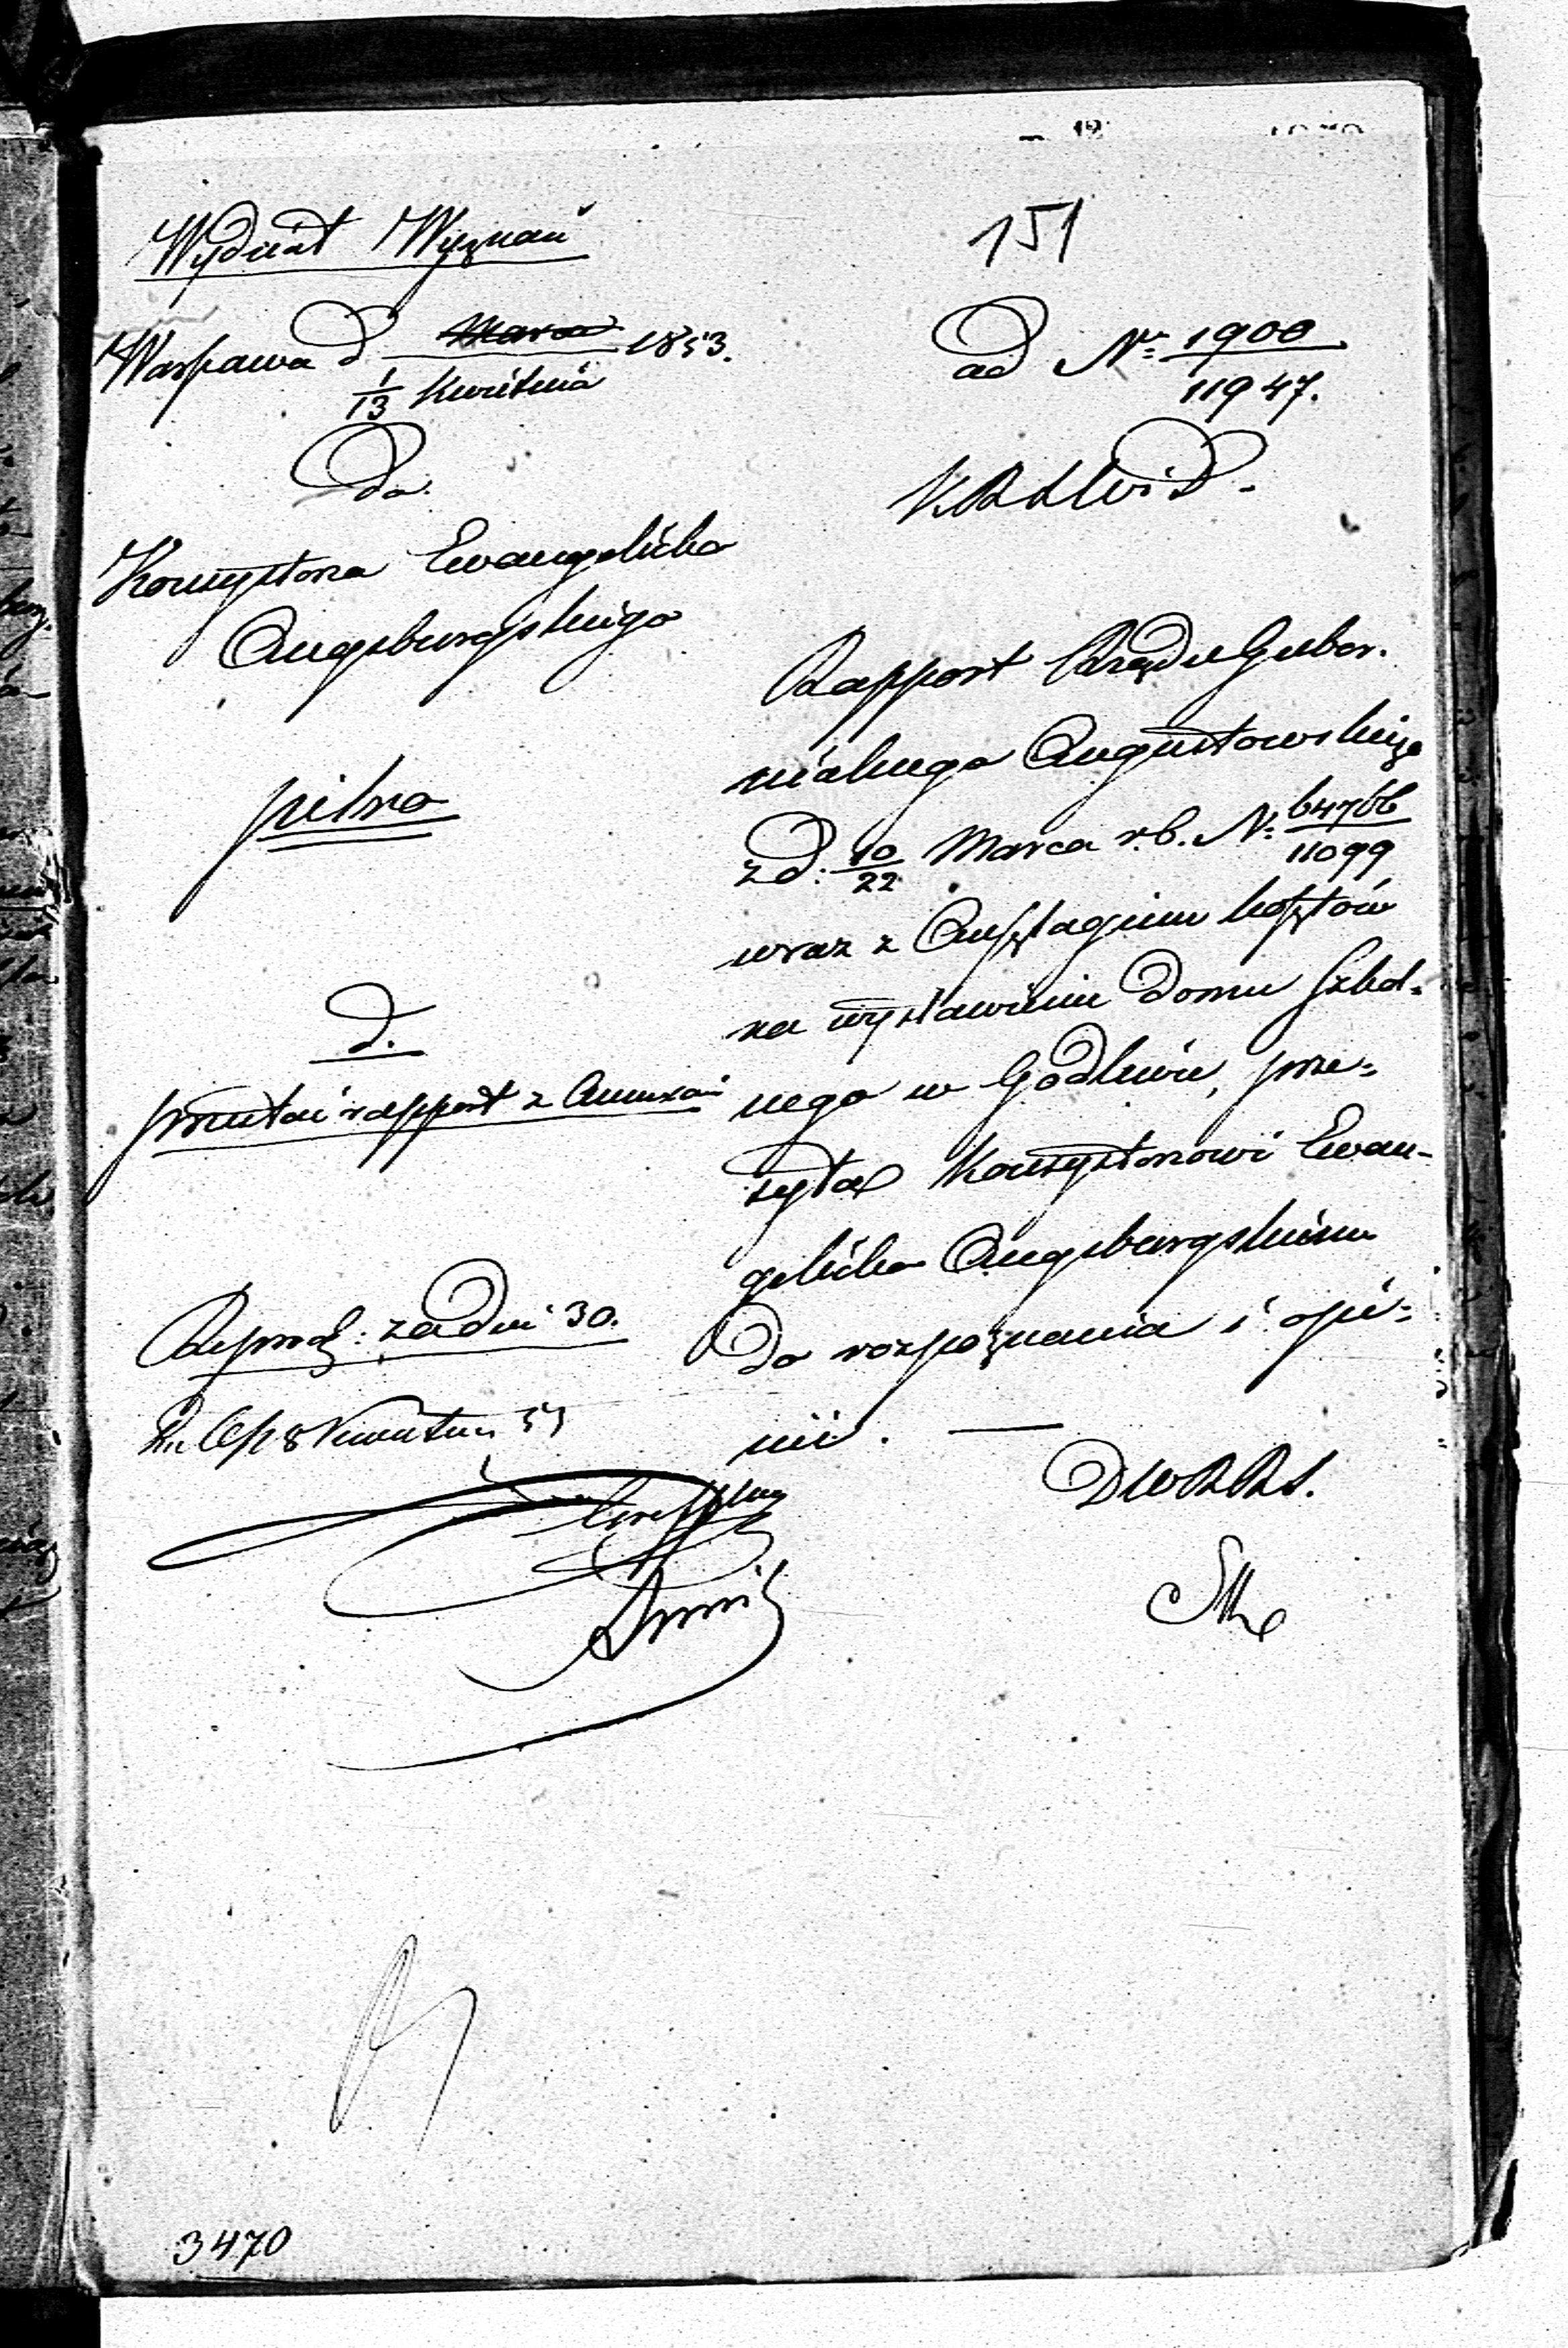 151
Wydział Wyznań
Warszawa d. Marca 1853.
1/13 Kwietnia
ad Nr 1900/11947.
Do
K.R.S.W.i D.
Konsystorza Ewangelicko
Augsburgskiego
pilno
d.
przesłać rapport z Annexami
Reprod: za dni 30.
Rapport Rządu Guber.
nialnego Augustowskiego
z d. 10/22 Marca r.b. Nr 64766/11099
wraz z Anszlagiem kosztów
na wystawienie domu szkol=
nego w Godlewie, prze=
syła Konsystorzowi Ewan-
gelicko Augsburgskiemu
do rozpoznania i opi=
nii. —
D.W.R.R.S.
3470